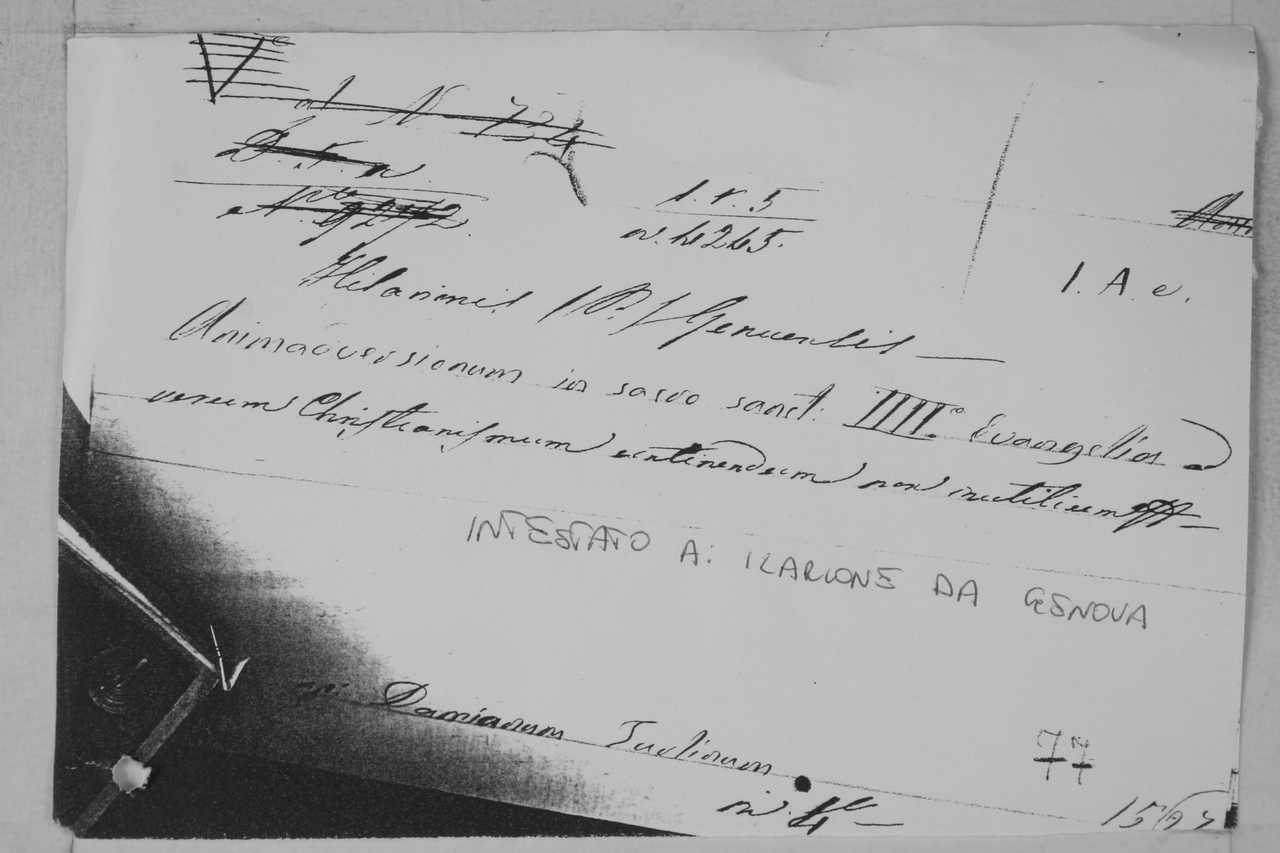 al N. 734
D. N. n
1. r. 5
n. 4245.
1. A. e.
Hilarionis (P.) Genuensis —
Animadversionum in sacro sanct. IIII.º Evangelior
verum Christianismum continendum non inutilium
INTESTATO A: ILARIONE DA GENOVA
Damianum Turlinum
77
in 4º — 1567